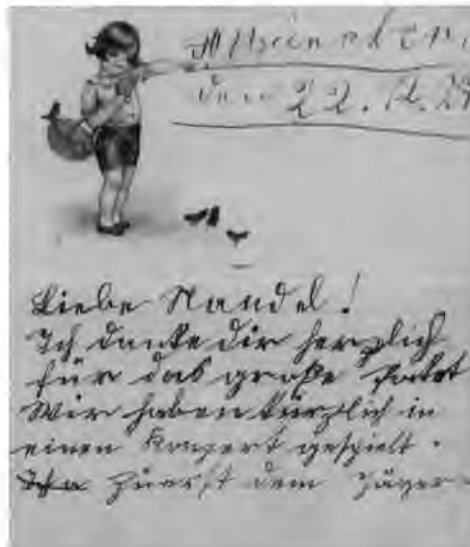 Rheinfelden,
den 22. 12. 24
Liebe Nandel!
Ich danke dir herzlich
für das große Paket
Wir haben kürzlich in
einen Konzert gespielt.
zuerst dem Jäger